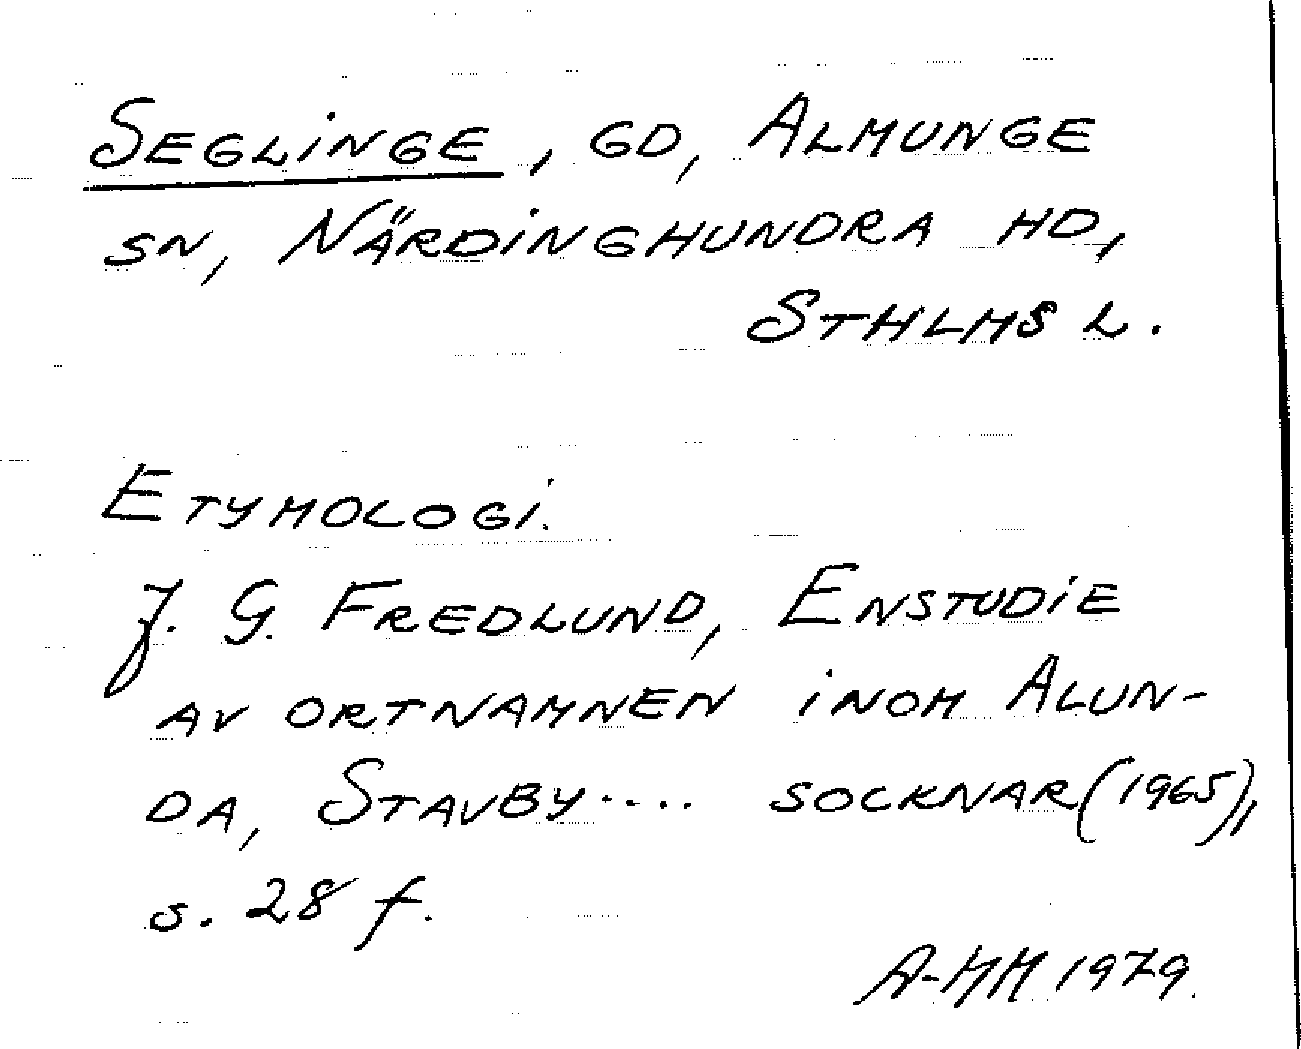 SEGLINGE, GD, ALMUNGE
SN, NÄRDINGHUNDRA HD,
STHLMS L.
ETYMOLOGI.
J. G. FREDLUND, EN STUDIE
AV ORTNAMNEN INOM ALUN-
DA, STAVBY.... SOCKNAR (1965),
s. 28 f.
A-MM 1979.